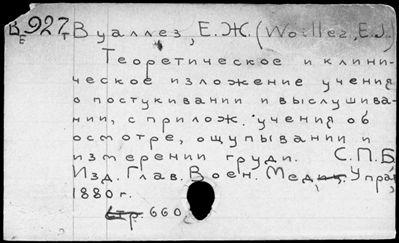 В 927 Вуаллез, Е. Ж. (Woillez, E. J.)
Е т
Теоретическое и клини-
ческое изложение учения
о постукивании и выслушива-
нии, с прилож. учения об
осмотре, ощупывании и
измерении груди. С.П.Б
Изд. Глав. Воен. Медиц. Упра,
1880 г.
Стр. 660